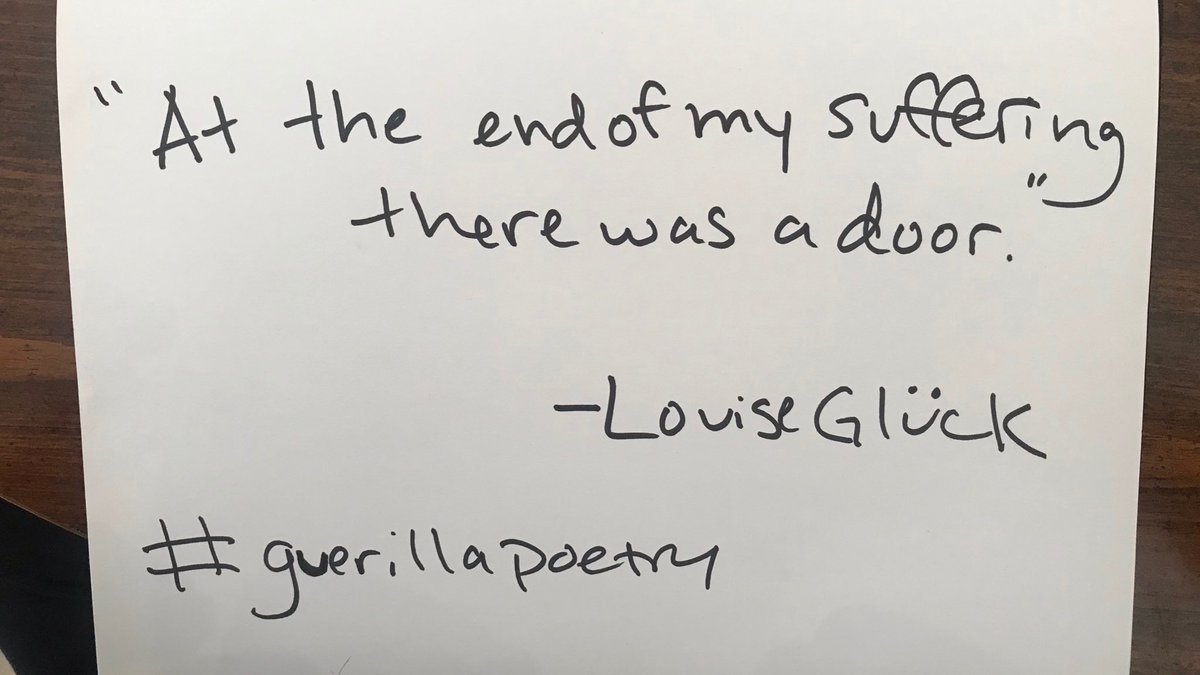 "At the end of my suffering
there was a door."
-Louise Glück
#guerillapoetry